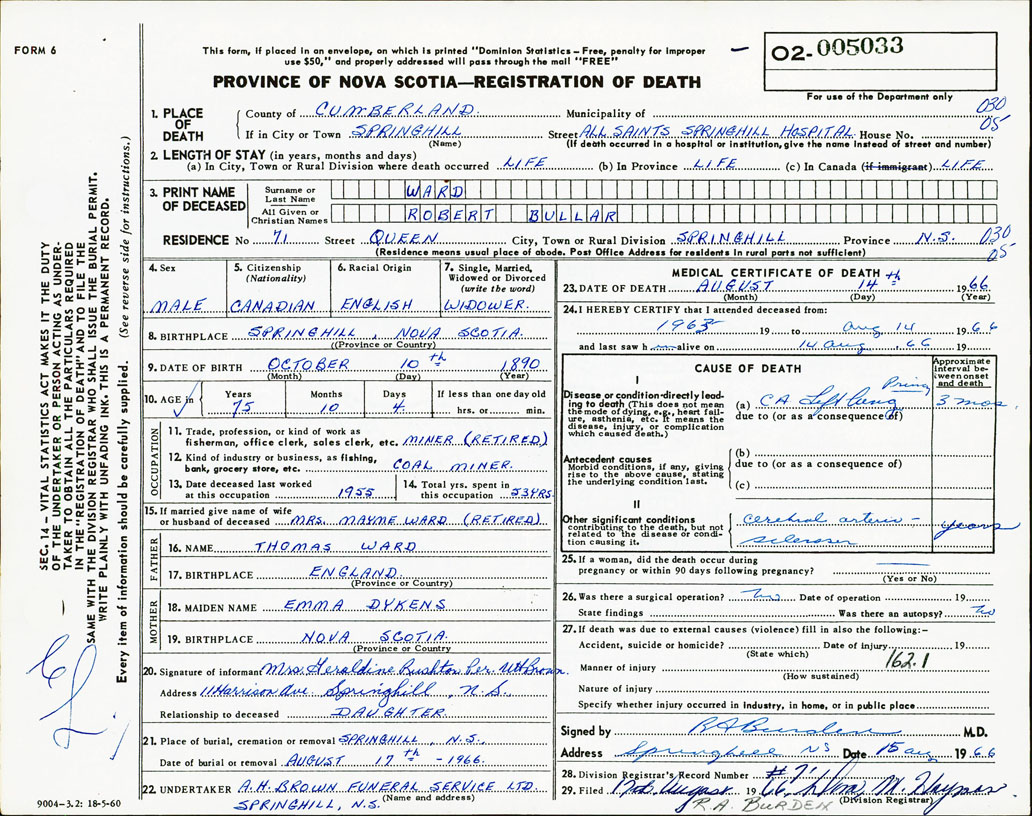 FORM 6
This form, if placed in an envelope, on which is printed "Dominion Statistics – Free, penalty for improper
use $50," and properly addressed will pass through the mail "FREE"
02-005033
PROVINCE OF NOVA SCOTIA—REGISTRATION OF DEATH
For use of the Department only
1. PLACE OF DEATH
County of CUMBERLAND. Municipality of 030
If in City or Town SPRINGHILL Street ALL SAINTS SPRINGHILL HOSPITAL House No. 05
(Name) (If death occurred in a hospital or institution, give the name instead of street and number)
2. LENGTH OF STAY (in years, months and days)
(a) In City, Town or Rural Division where death occurred LIFE (b) In Province LIFE (c) In Canada (if immigrant) LIFE
3. PRINT NAME OF DECEASED
Surname or Last Name WARD
All Given or Christian Names ROBERT BULLAR
RESIDENCE No 71 Street QUEEN City, Town or Rural Division SPRINGHILL Province N.S. 030
(Residence means usual place of abode. Post Office Address for residents in rural parts not sufficient) 05
4. Sex MALE
5. Citizenship (Nationality) CANADIAN
6. Racial Origin ENGLISH
7. Single, Married, Widowed or Divorced (write the word) WIDOWER.
8. BIRTHPLACE SPRINGHILL, NOVA SCOTIA.
(Province or Country)
9. DATE OF BIRTH OCTOBER 10th 1890
(Month) (Day) (Year)
10. AGE in Years 75 Months 10 Days 4 If less than one day old hrs. or min.
OCCUPATION
11. Trade, profession, or kind of work as
fisherman, office clerk, sales clerk, etc. MINER (RETIRED)
12. Kind of industry or business, as fishing,
bank, grocery store, etc. COAL MINER.
13. Date deceased last worked
at this occupation 1955
14. Total yrs. spent in
this occupation 53 YRS.
15. If married give name of wife
or husband of deceased MRS. MAYME WARD (RETIRED)
FATHER
16. NAME THOMAS WARD
17. BIRTHPLACE ENGLAND.
(Province or Country)
MOTHER
18. MAIDEN NAME EMMA DYKENS
19. BIRTHPLACE NOVA SCOTIA.
(Province or Country)
20. Signature of informant Mrs. Geraldine Rushton Per. WH Brown.
Address 11 Harrison Ave. Springhill, N.S.
Relationship to deceased DAUGHTER.
21. Place of burial, cremation or removal SPRINGHILL, N.S.,
Date of burial or removal AUGUST 17th - 1966.
22. UNDERTAKER A.H. BROWN FUNERAL SERVICE LTD.
(Name and address)
SPRINGHILL, N.S.
MEDICAL CERTIFICATE OF DEATH
23. DATE OF DEATH AUGUST 14th 1966
(Month) (Day) (Year)
24. I HEREBY CERTIFY that I attended deceased from:
1963 19 to Aug 14 1966
and last saw h alive on 14 Aug, 66 19
CAUSE OF DEATH
Approximate interval between onset and death
I
Disease or condition directly leading to death (This does not mean the mode of dying, e.g., heart failure, asthenia, etc. It means the disease, injury, or complication which caused death.)
(a) CA Left Lung Prim 3 mos
due to (or as a consequence of)
Antecedent causes
Morbid conditions, if any, giving rise to the above cause, stating the underlying condition last.
(b)
due to (or as a consequence of)
(c)
II
Other significant conditions contributing to the death, but not related to the disease or condition causing it.
cerebral arterio-
sclerosis years
25. If a woman, did the death occur during
pregnancy or within 90 days following pregnancy?
(Yes or No)
26. Was there a surgical operation? No Date of operation 19
State findings Was there an autopsy? No
27. If death was due to external causes (violence) fill in also the following:–
Accident, suicide or homicide? Date of injury 19
(State which) 162.1
Manner of injury
(How sustained)
Nature of injury
Specify whether injury occurred in industry, in home, or in public place
Signed by RA Burden M.D.
Address Springhill NS Date 15 Aug 1966
28. Division Registrar's Record Number #71
29. Filed August 1966, M. Haynes
(Division Registrar)
R.A. BURDEN
SEC. 14 – VITAL STATISTICS ACT MAKES IT THE DUTY
OF THE UNDERTAKER OR PERSON ACTING AS UNDER-
TAKER TO OBTAIN ALL THE PARTICULARS REQUIRED
IN THE "REGISTRATION OF DEATH" AND TO FILE THE
SAME WITH THE DIVISION REGISTRAR WHO SHALL ISSUE THE BURIAL PERMIT.
WRITE PLAINLY WITH UNFADING INK. THIS IS A PERMANENT RECORD.
Every item of information should be carefully supplied. (See reverse side for instructions.)
9004–3.2: 18-5-60